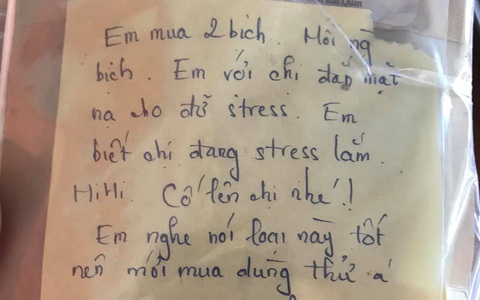 Em mua 2 bịch. Mỗi ng
bịch. Em với chị đắp mặt
nạ cho đỡ stress. Em
biết chị đang stress lắm.
HiHi. Cố lên chị nhé!
Em nghe nói loại này tốt
nên mới mua dùng thử á